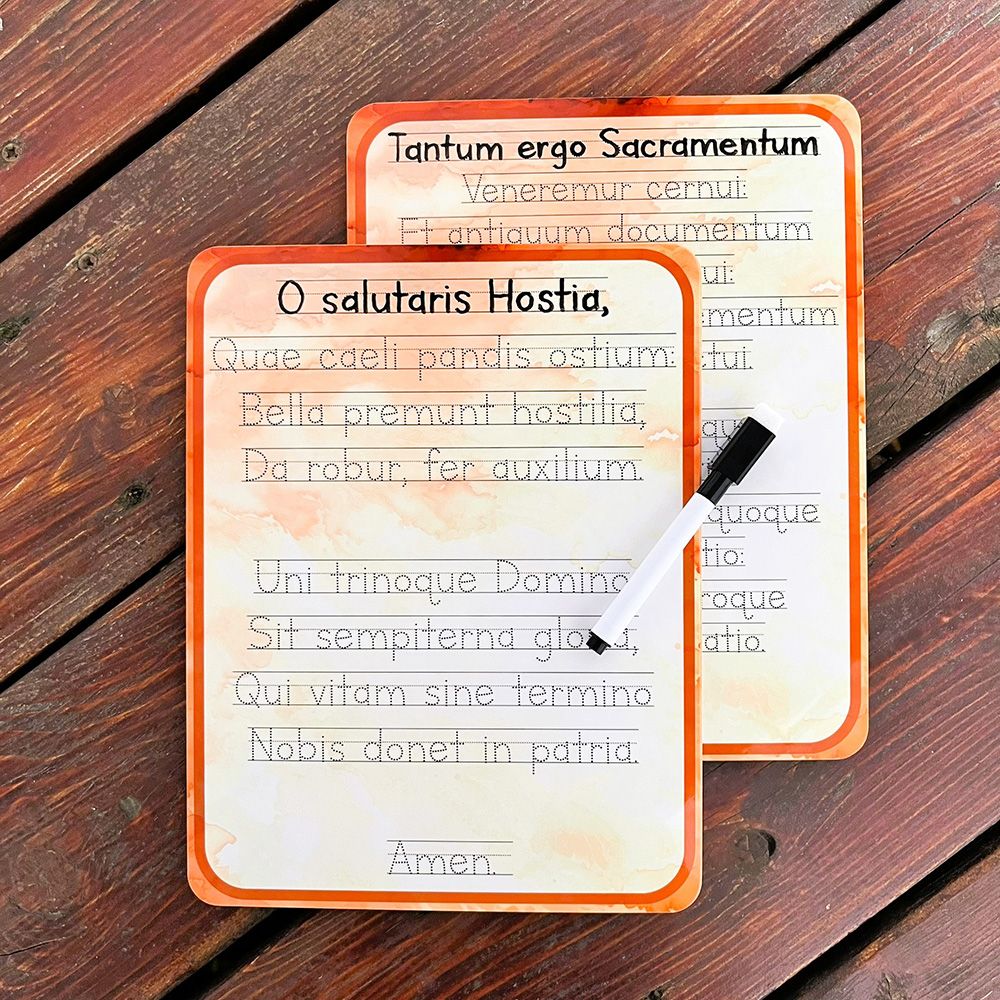 Tantum ergo Sacramentum
Veneremur cernui:
Et antiquum documentum
ui:
ementum
ctui.
qu
quoque
tio:
roque
atio.
O salutaris Hostia,
Quae caeli pandis ostium:
Bella premunt hostilia,
Da robur, fer auxilium.
Uni trinoque Domino
Sit sempiterna gloria,
Qui vitam sine termino
Nobis donet in patria.
Amen.